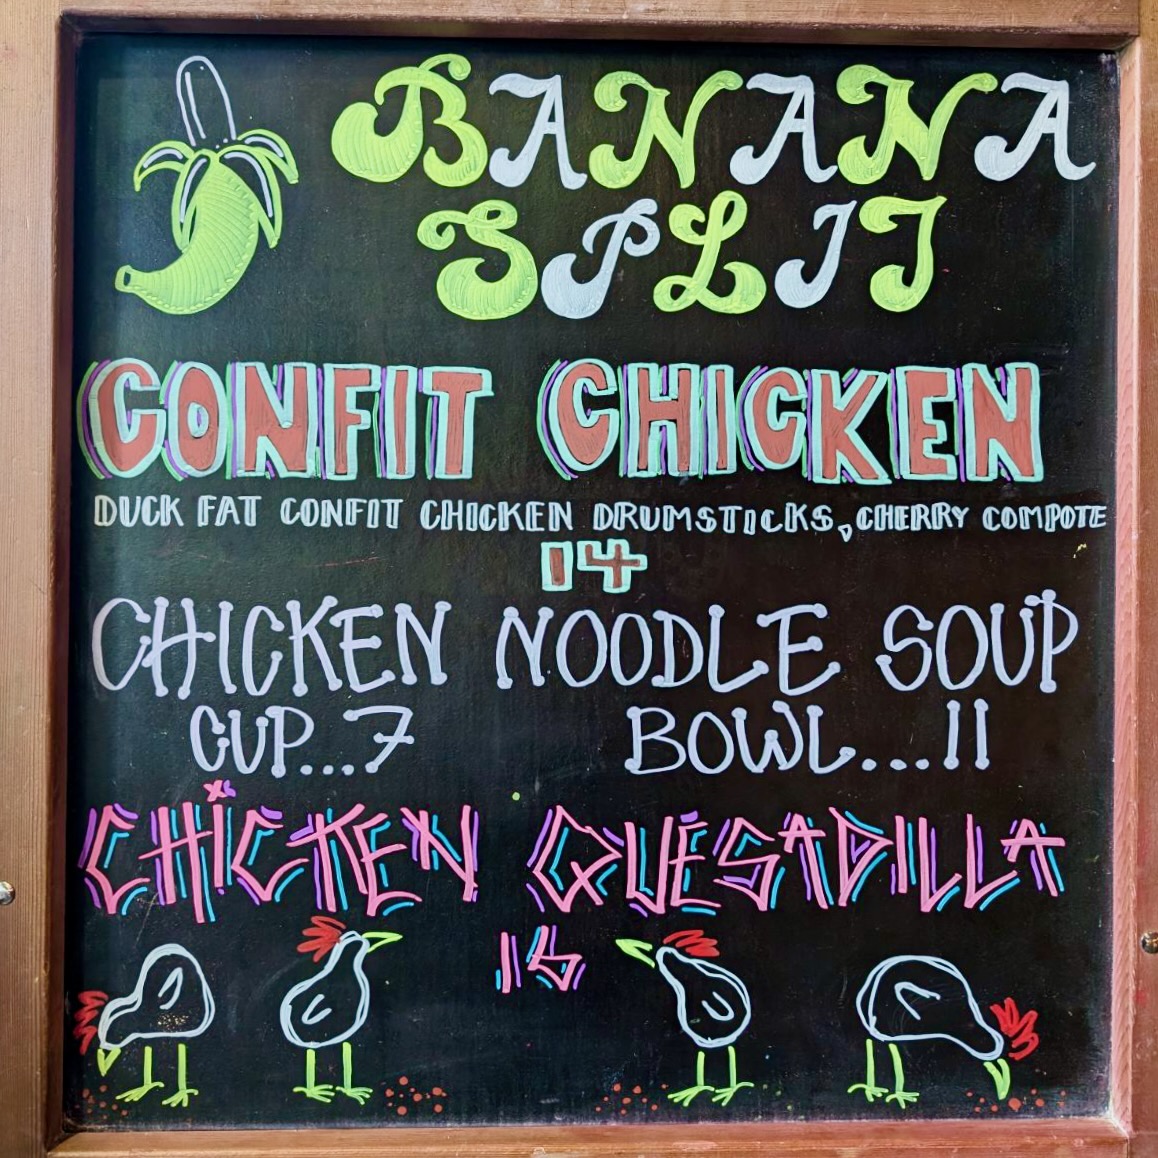 BANANA
SPLIT
CONFIT CHICKEN
DUCK FAT CONFIT CHICKEN DRUMSTICKS, CHERRY COMPOTE
14
CHICKEN NOODLE SOUP
CUP...7 BOWL...11
CHiCKEN QUESADILLA
16